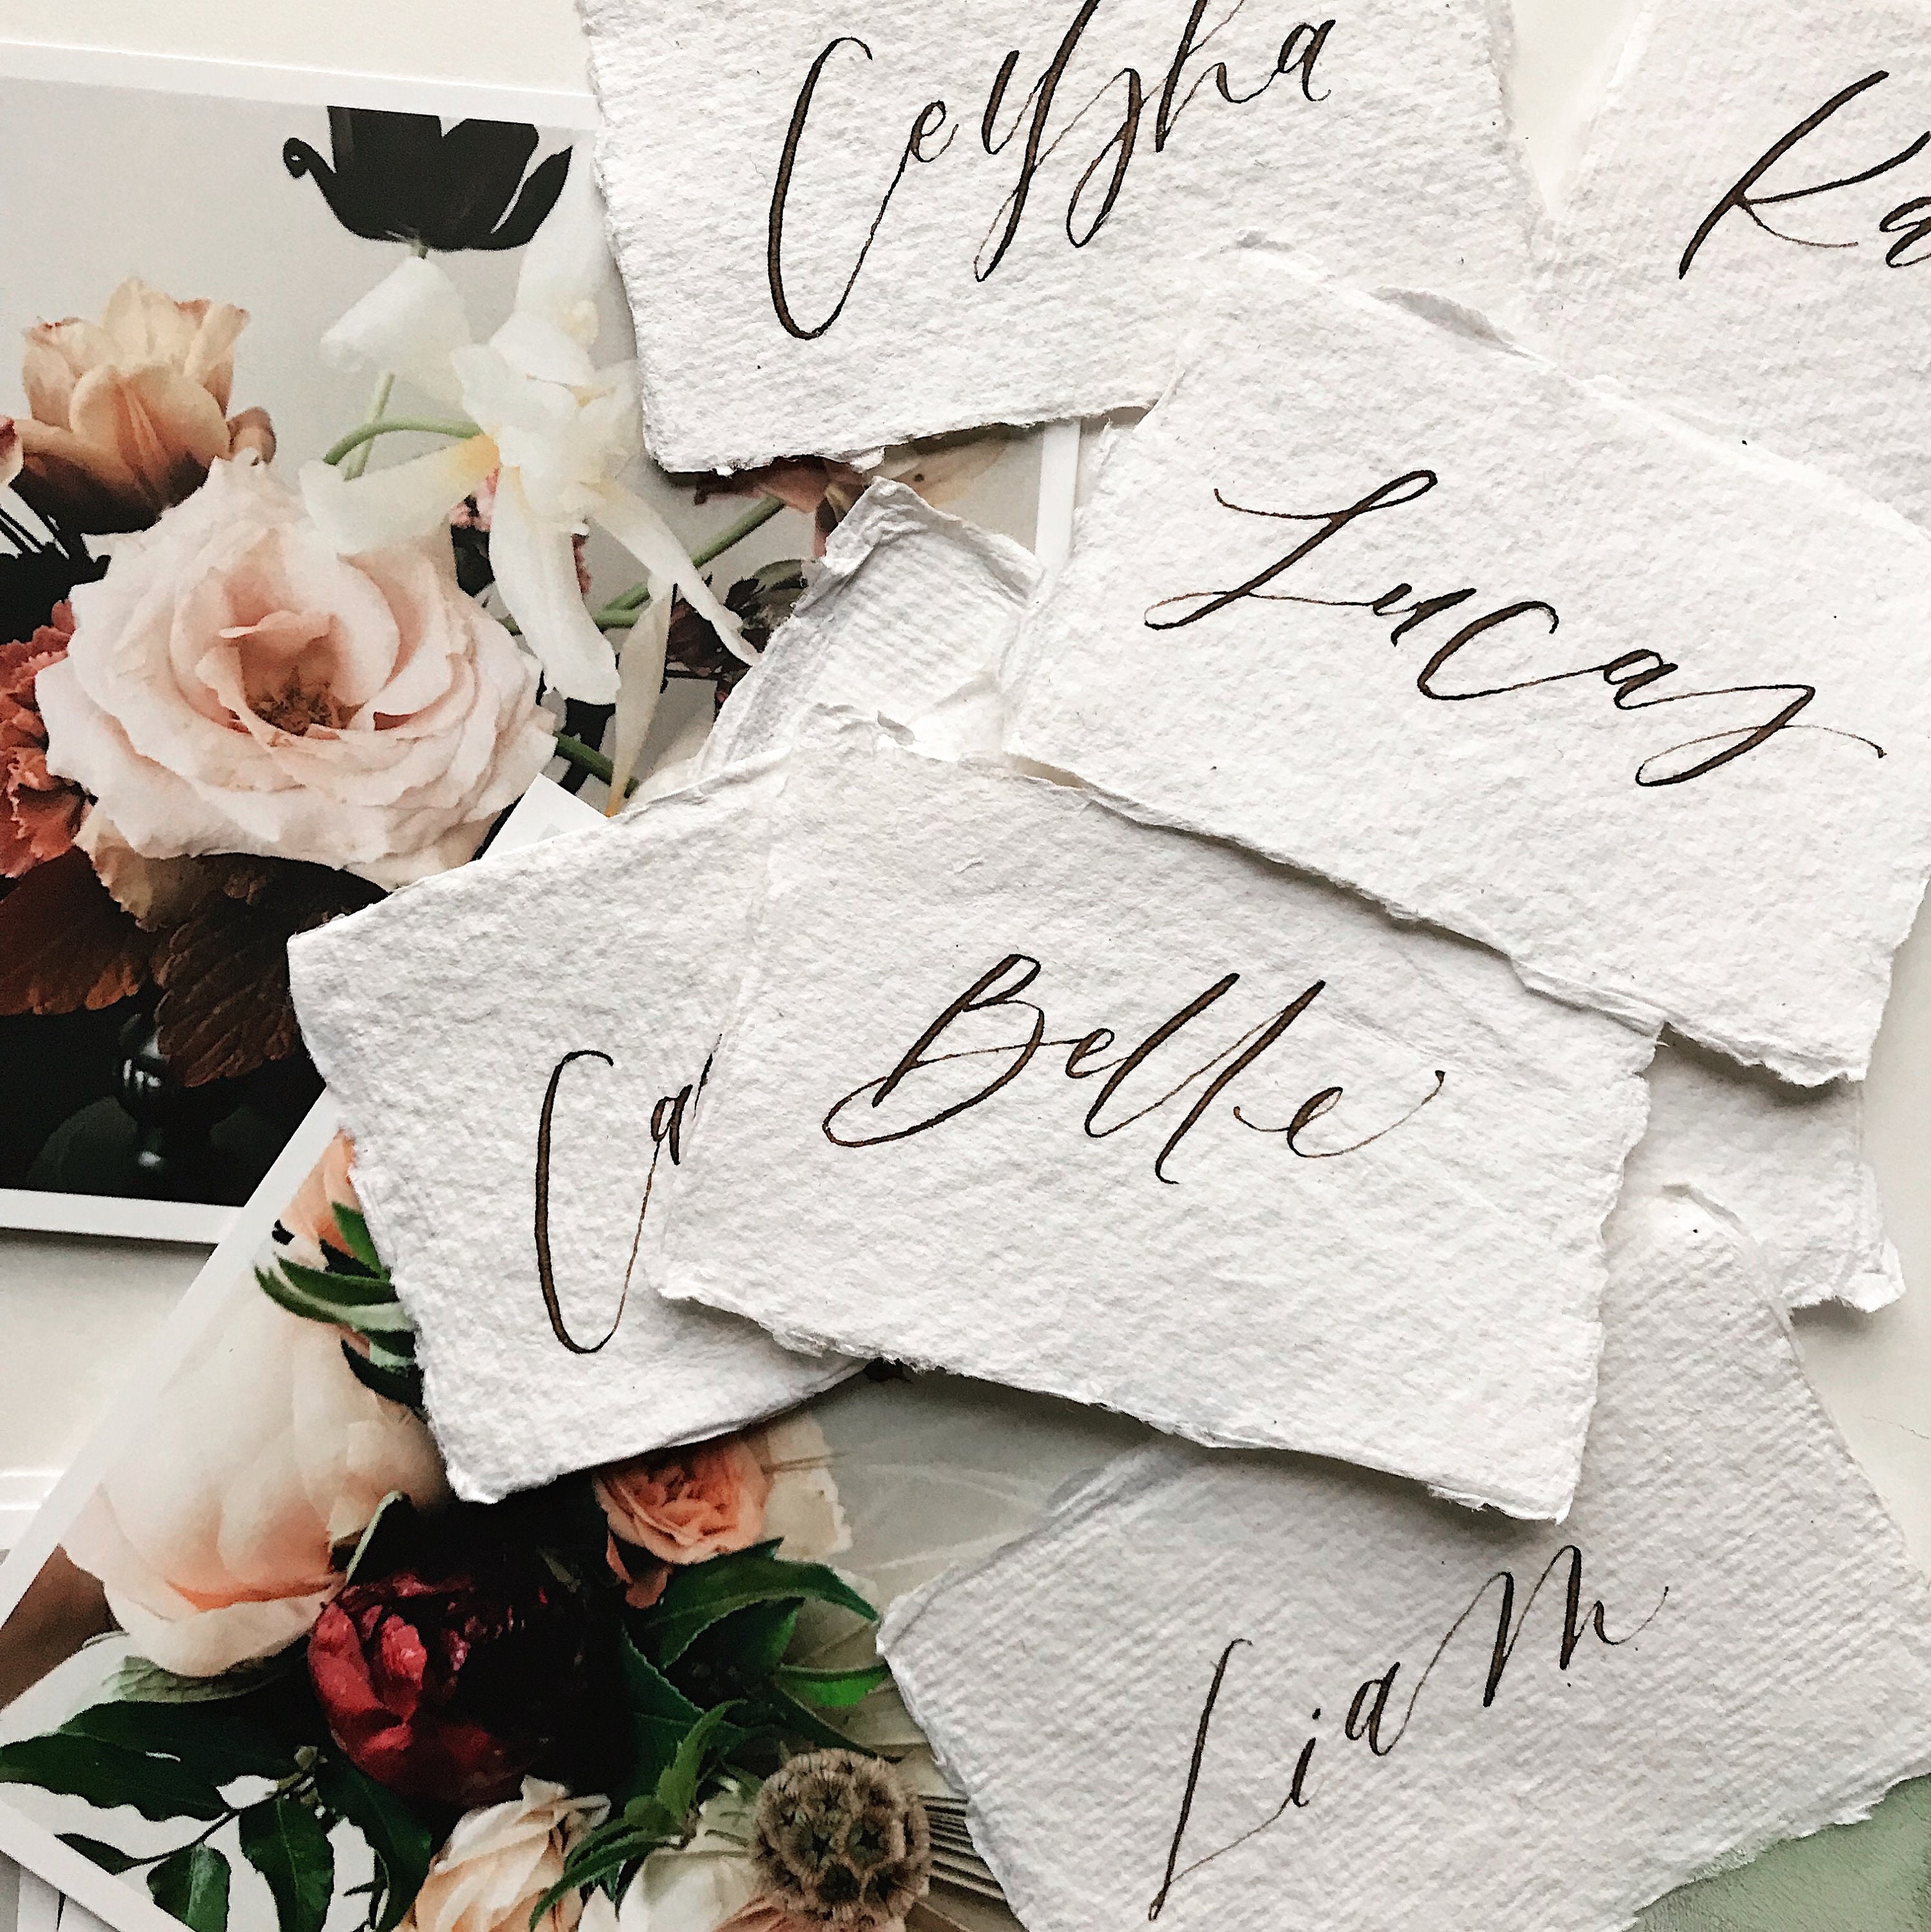 Ceysha
Lucas
Belle
Liam